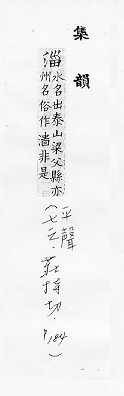 集韻
淄水名出泰山梁父縣亦
州名俗作濇非是
(平聲
七之．莊持切．
P184)